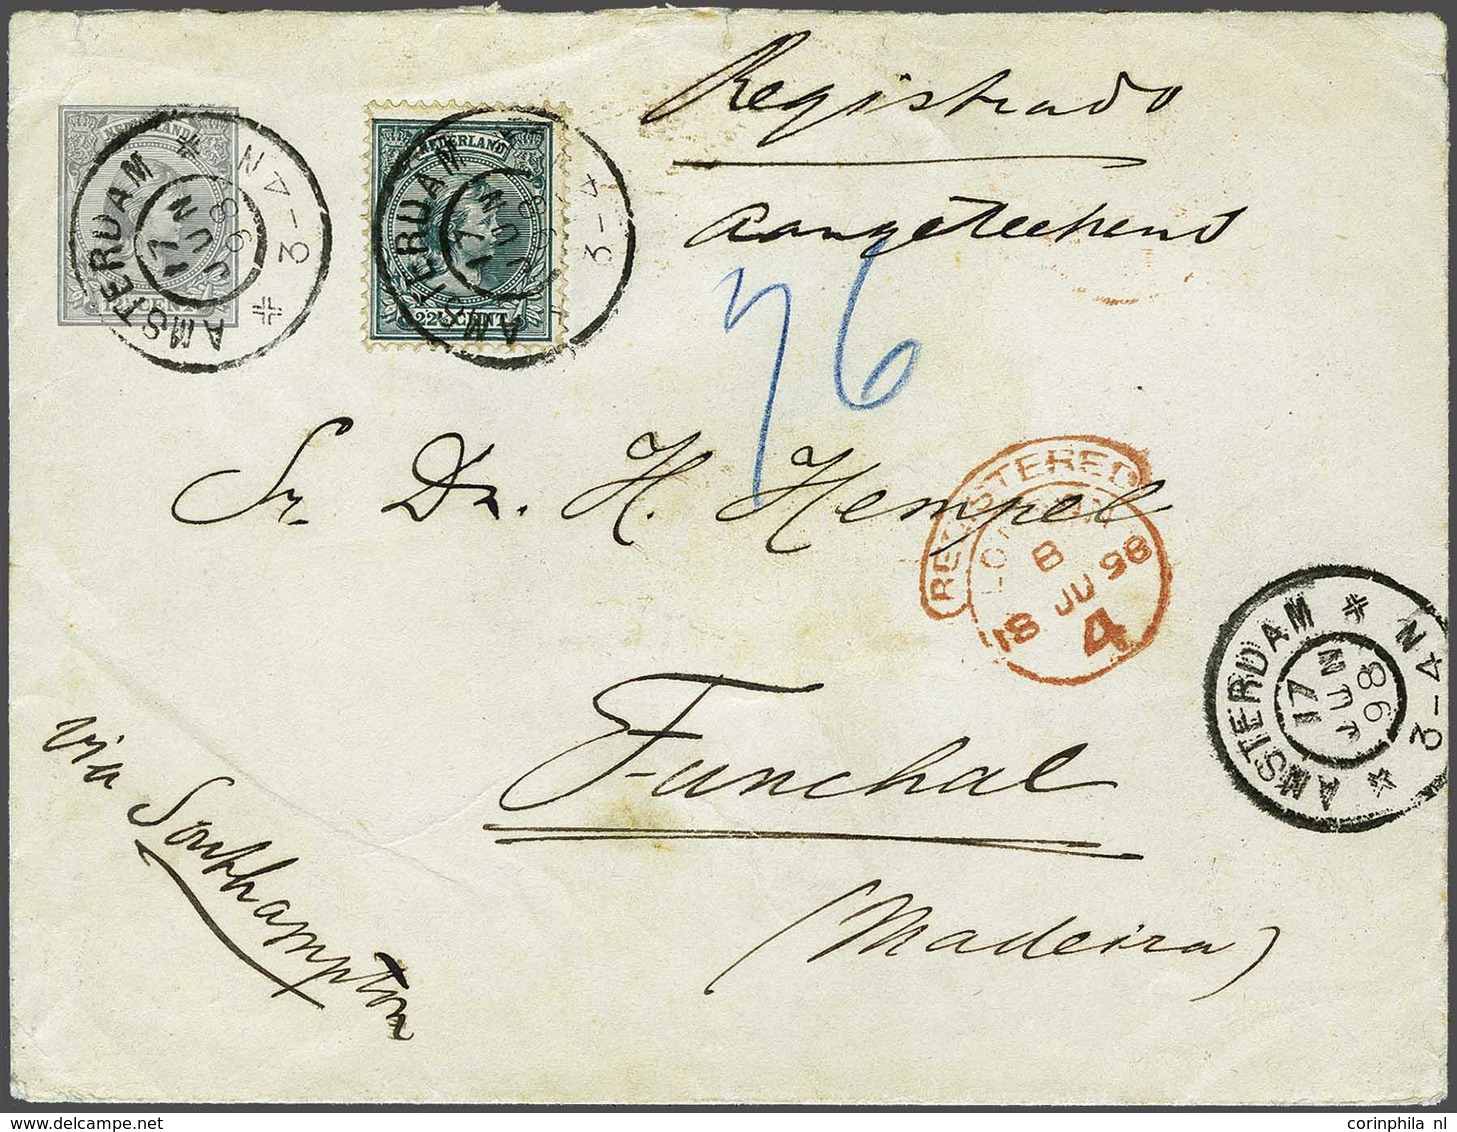 Registrado
Aangeteekend
NEDERLAND
CENT
NEDERLAND
22½ CENT
AMSTERDAM
17 JUN 98
3-4 N
AMSTERDAM
17 JUN 98
3-4 N
76
Sr. Dr. H. Hempel
REGISTERED
LONDON
B
18 JU 98
4
AMSTERDAM
17 JUN 98
3-4 N
Funchal
(Madeira)
via Southampton
corinphila nl